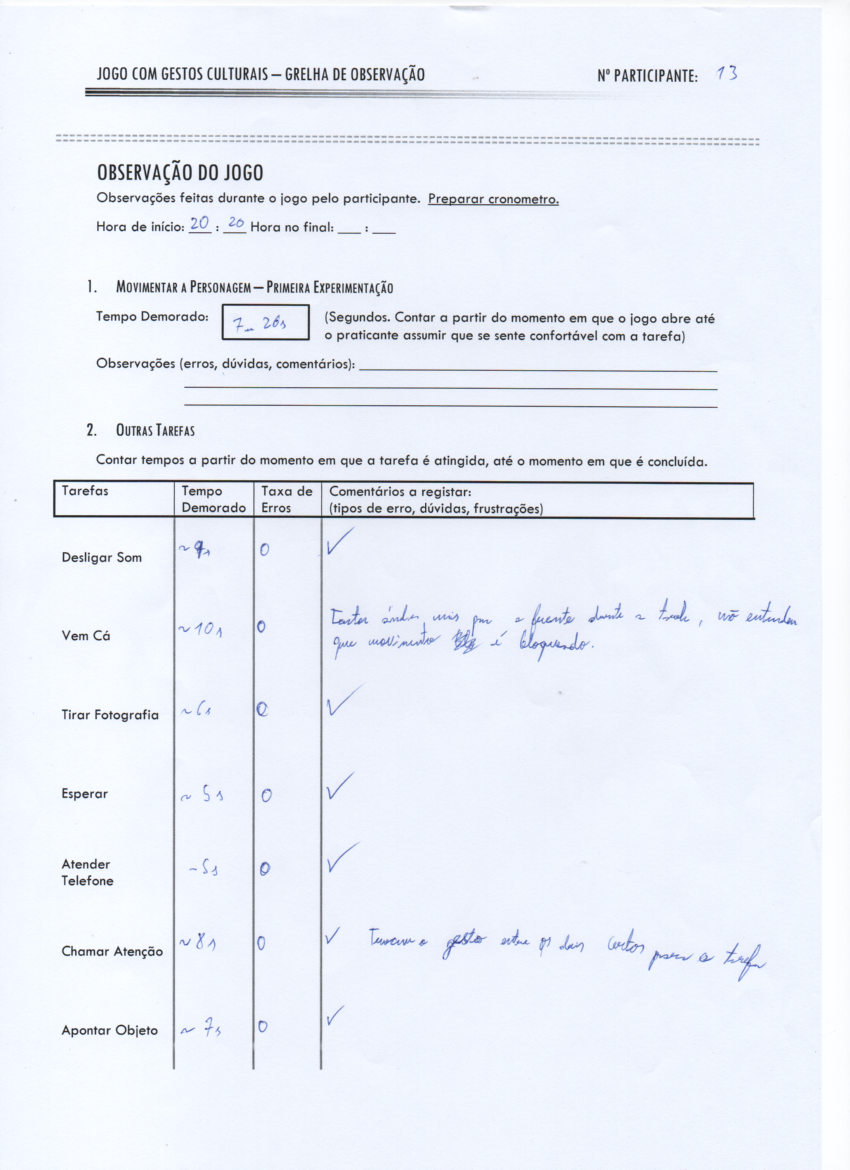 JOGO COM GESTOS CULTURAIS – GRELHA DE OBSERVAÇÃO Nº PARTICIPANTE: 13
OBSERVAÇÃO DO JOGO
Observações feitas durante o jogo pelo participante. Preparar cronometro.
Hora de início: 20 : 20 Hora no final: ___ : ___
1. MOVIMENTAR A PERSONAGEM – PRIMEIRA EXPERIMENTAÇÃO
Tempo Demorado: (Segundos. Contar a partir do momento em que o jogo abre até
o praticante assumir que se sente confortável com a tarefa)
Observações (erros, dúvidas, comentários):
2. OUTRAS TAREFAS
Contar tempos a partir do momento em que a tarefa é atingida, até o momento em que é concluída.
Tarefas Tempo Demorado Taxa de Erros Comentários a registar: (tipos de erro, dúvidas, frustrações)
Desligar Som 0 ✓
Vem Cá ~10s 0 a frente durante a tarefa, não entendeu
que movimento é bloqueado.
Tirar Fotografia ~6s 0 ✓
Esperar ~ 5s 0 ✓
Atender Telefone ~5s 0 ✓
Chamar Atenção ~8s 0 ✓ gesto entre os dois certos para a tarefa
Apontar Objeto ~ 7s 0 ✓